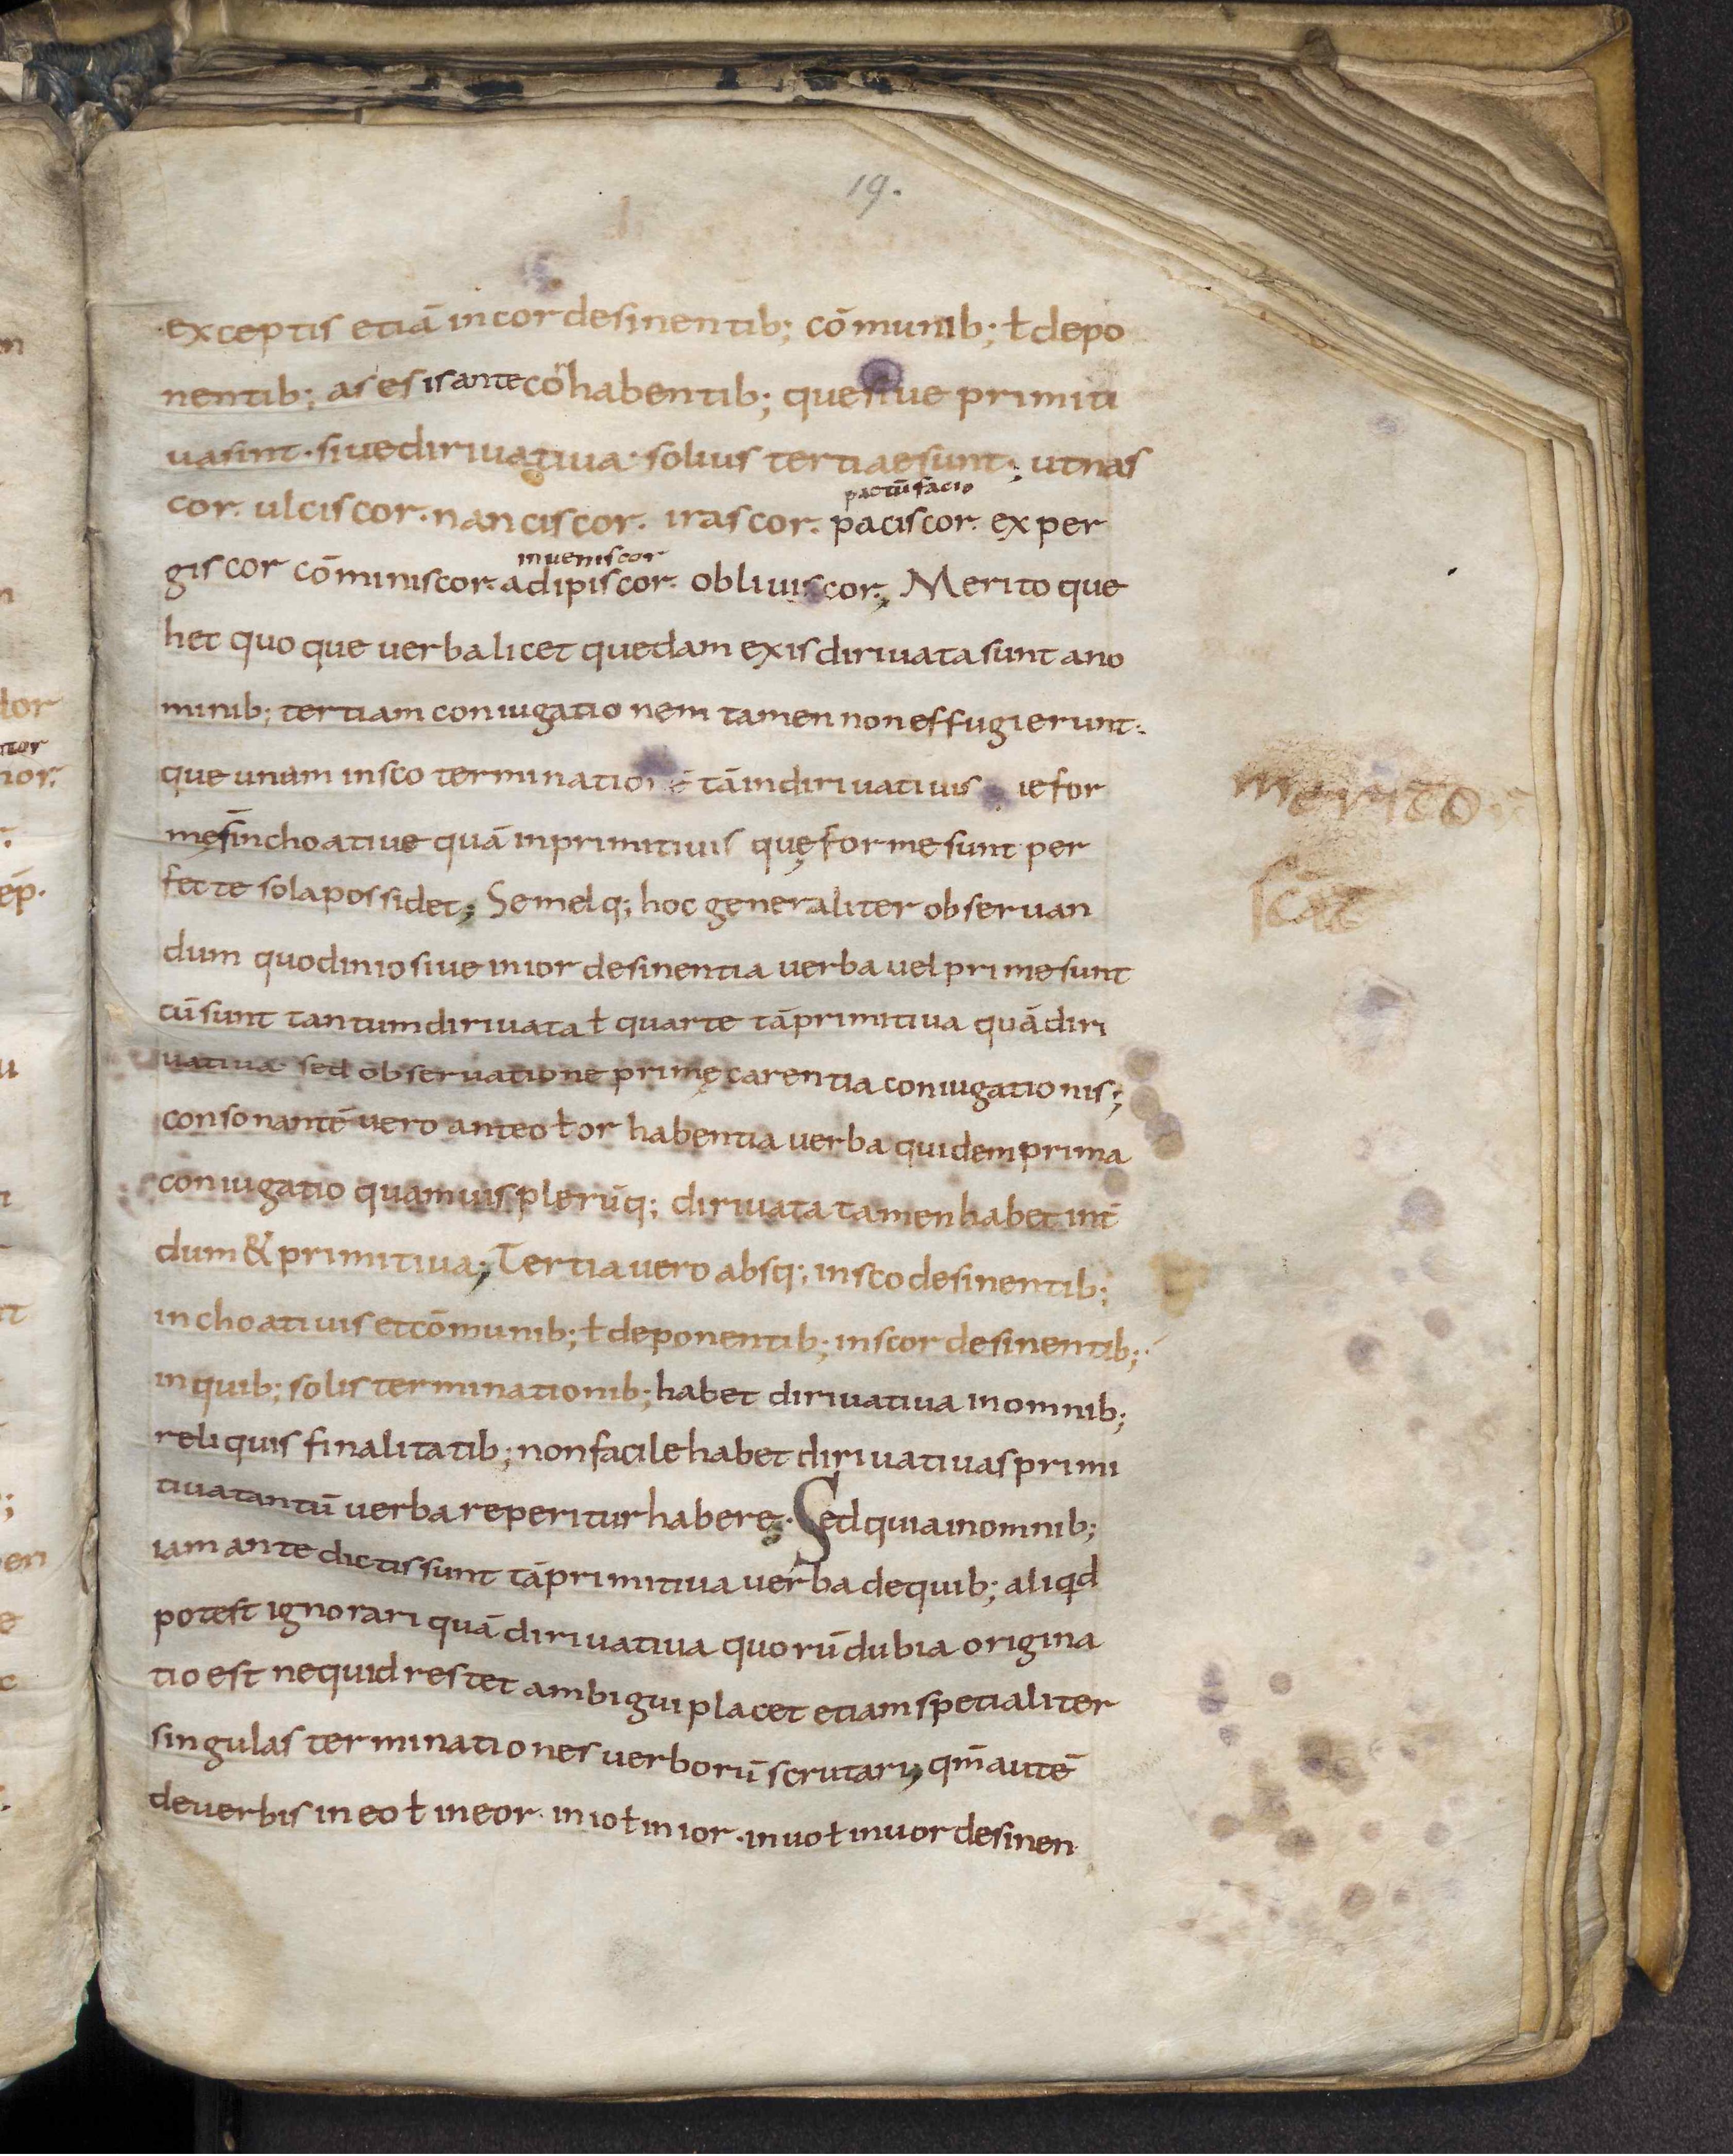 19.
exceptis etiā in cor desinentib; cōmunib; ł depo
nentib; as es is ante cor habentib; que siue primiti
ua sint · siue diriuatiua · solius tertiae sunt; ut nas
cor. ulciscor · nanciscor. irascor. paciscor. exper
pactū facio
giscor cōminiscor. adipiscor. obliuiscor; Merito que
inueniscor
hec quoque uerba licet quedam ex is diriuata sunt a no
minib; tertiam coniugationem tamen non effugierunt.
que unam in sco terminationē tām diriuatiuis for
mę s̄ inchoatiue quā in primitiuis quę forme sunt per
fecte sola possidet; Semelq; hoc generaliter obseruan
dum quod in io siue in ior desinentia uerba uel prime sunt
cū sunt tantum diriuata ł quarte tā primitiua quā diri
uatiua · sed obseruatione primę carentia coniugationis;
consonantē uero ante o ł or habentia uerba quidem prima
coniugatio quamuis plerūq; diriuata tamen habet int̄
dum & primitiua; Tertia uero absq; in sco desinentib;
inchoatiuis et cōmunib; ł deponentib; in scor desinentib;
in quib; solis terminationib; habet diriuatiua in omnib;
reliquis finalitatib; non facile habet diriuatiua s primi
tiua tantū uerba reperitur habere; Sed quia in omnib;
iam ante dictis sunt tā primitiua uerba de quib; aliqd
potest ignorari quā diriuatiua quorū dubia origina
tio est nequid restet ambigui placet etiam spetialiter
singulas terminationes uerborū scrutari; qm̄ autē
de uerbis in eo ł in eor · in io ł in ior · in uo ł in uor desinen
merito